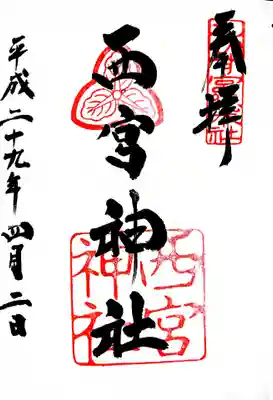 奉拝
西宮神社
西宮
神社
平成二十九年四月二日